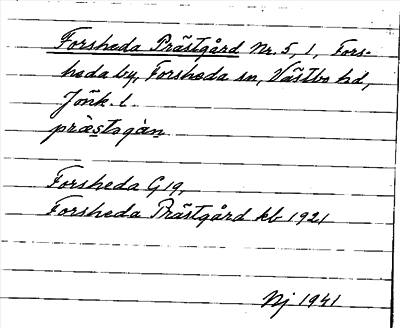 Forsheda Prästgård Nr. 5, 1, Fors-
heda by, Forsheda sn, Västbo hd,
Jönk. l.
præ̀stagàn
Forsheda G 19,
Forsheda Prästgård kb 1921
Nj 1941